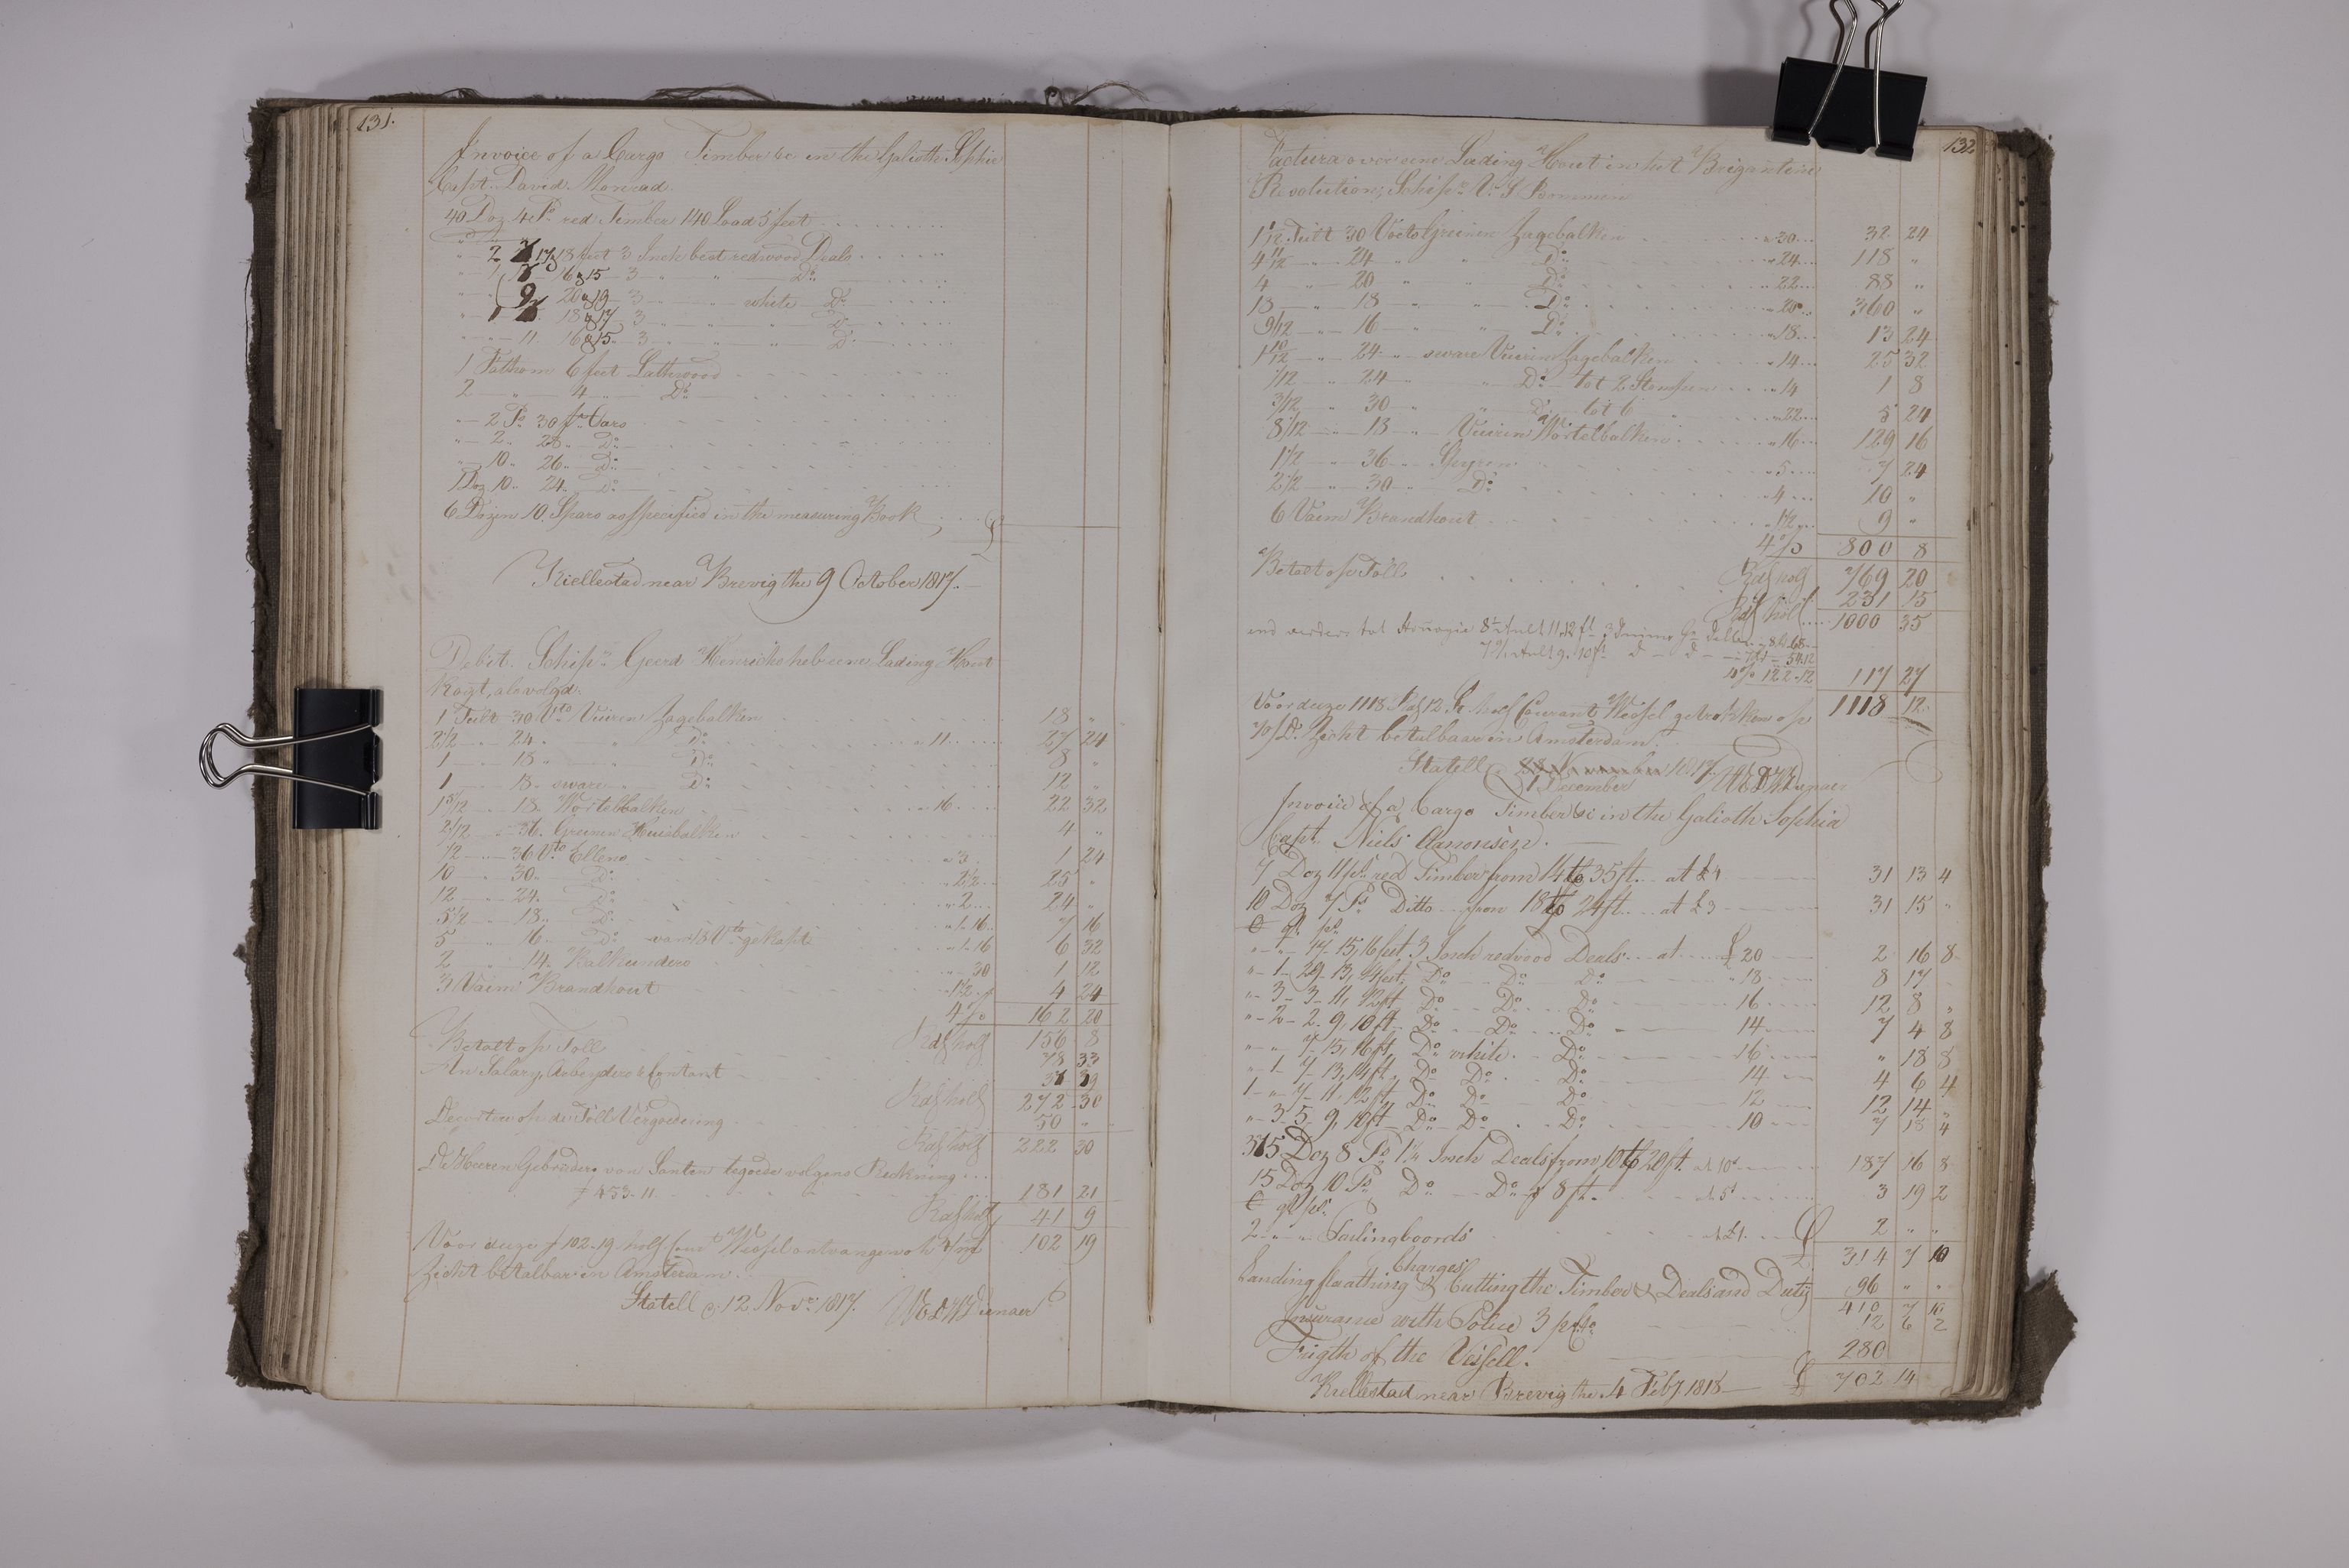 131.
Invoice of a Cargo Timber &c in the Galioth Sophie
Capt. David Monrad.
40 Doz 4 Ps red Timber 140 Load 5 feet
" 2 17 & 18 feet 3 Inch best redwood Deals
" 1 16 & 15 3 " " Do
" 2 20 & 19 3 " " white Do
" 1 18 & 17 3 " " Do
" 11 16 & 15 3 " " Do
1 Fathom 6 feet Lathwood
2 " 4 " Do
" 2 Ps 30 ft Oars
" 2 " 28 " Do
" 10 " 26 " Do
1 Doz 10 " 24 " Do
6 Dozen 10 Spars as specified in the measuring Book
Kiellestad near Brevig the 9 October 1817.
Debit. Schipr Geerd Henrichs heb eene Lading Hout
Kogt, als volgd:
1 Tult 30 Vto Vuiren Zagebalken 18 "
2 1/2 " 24 " " Do " 11 27 24
1 " 18 " " Do 8 "
1 " 18 sware Do 12 "
1 5/12 " 18 Wortelbalken " 16 22 32
2/12 " 36 Greinen Huisbalken 4 "
1/2 " 36 Vto Ellens " 3 1 24
10 " 30 " Do " 2 1/2 25 "
12 " 24 " Do " 2 24 "
5 1/2 " 18 " Do " 1.16 7 16
5 " 16 " Do van 18 Vto gekapte " 1.16 6 32
2 " 14 " Kalkunders " 30 1 12
3 Vaim Brandhout " 1 1/2 4 24
4 p% 162 20
Rds holl 156 8
Betalt op Toll 78 33
An Salary, Arbeyders & Contant 37 39
Rds holl 272 30
Decorteer op de Toll Vergoedering 50 "
Rds holl 222 30
De Heeren Gebruders von Santen tegoede volgens Rekning
f 453.11 181 21
Rds holl 41 9
Voor deze f 102.19 holl Cour Wessel ontvangen op 102 19
Zicht betalbar in Amsterdam.
Statell d 12 Novr 1817.
132
Factura over eene Lading Hout in het Brigantine
Revolution, Schipr
1 1/12 Tult 30 Voets Greinen Zagebalken " 30 32 24
4 11/12 " 24 " " Do " 24 118 "
4 " 20 " " Do " 22 88 "
18 " 18 " " Do " 20 360 "
9/12 " 16 " " Do " 18 13 24
1 10/12 " 24 " sware Vuiren Zagebalken " 14 25 32
1/12 " 24 " " Do tot 2 Stompen " 14 1 8
3/12 " 30 " " Do tot 6 " 22 5 24
8 1/12 " 18 " Vuiren Wortelbalken " 16 129 16
1 1/2 " 36 " Spyren " 5 7 24
2 1/2 " 30 " Do " 4 10 "
6 Vaim Brandhout " 1 1/2 9 "
4 p% 800 8
Rds holl 769 20
Betalt op Toll 231 15
Rds holl 1000 35
117 27
Voor deze 1118 Rds 12 St holl Courant Wessel getrokken op 1118 12
Zicht betalbaar in Amsterdam.
Statell d November 1817.
1 December
Invoice of a Cargo Timber &c in the Galioth Sophia
Capt. Niels Aamonsen.
7 Doz 11 ps red Timber from 14 to 35 ft at £ 4 31 13 4
10 Doz 7 Ps Ditto from 18 to 24 ft at £ 3 31 15 "
C q ps
" " 17 15, 16 feet 3 Inch redwood Deals at £ 20 2 16 8
" 1 29 13, 14 feet Do Do Do " 18 8 17
" 3 3 11, 12 ft Do Do Do 16 12 8 "
" 2 2 9, 10 ft Do Do Do 14 7 4 8
" " 7 15, 16 ft Do white Do 16 " 18 8
" 1 7 13, 14 ft Do Do Do 14 4 6 4
1 " 7 11, 12 ft Do Do Do 12 12 14 "
" 3 5 9, 10 ft Do Do Do 10 7 18 4
375 Doz 8 Ps 1 1/4 Inch Deals from 10 to 20 ft at 10d 187 16 8
15 Doz 10 Ps Do Do 8 ft at 5d 3 19 2
C q ps
2 " " Palingboords at £1 £ 2 " "
314 7 10
Charges
Landing flaathing & Cutting the Timber & Deals and Duty 96 " "
410 7 10
Insurance with Police 3 p Co 12 6 2
Frigth of the Vessell. 280
Kiellestad near Brevig the 4 Feby 1818 £ 702 14